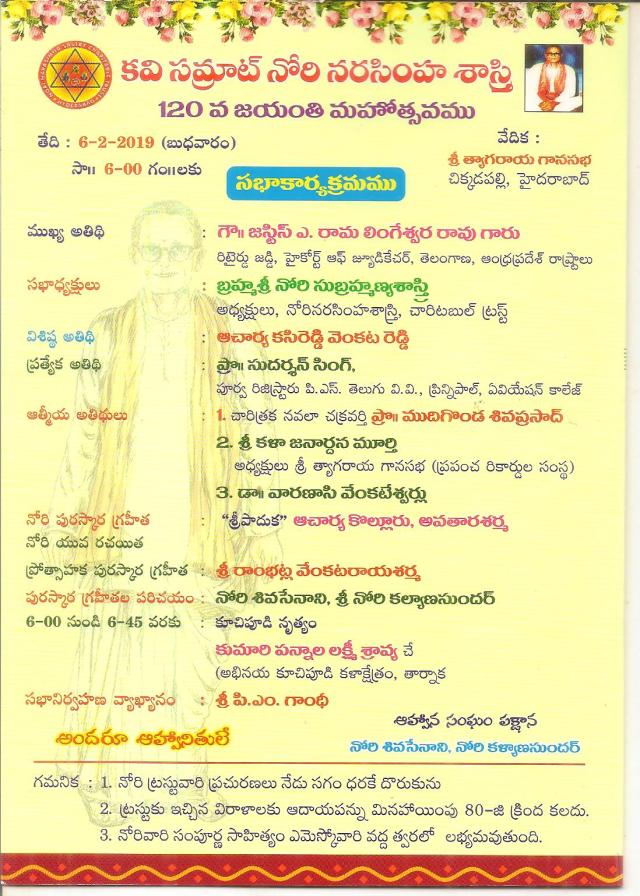 కవి సమ్రాట్ నోరి నరసింహ శాస్త్రి
120 వ జయంతి మహోత్సవము
తేది : 6-2-2019 (బుధవారం)
సా॥ 6-00 గం॥లకు
వేదిక :
శ్రీ త్యాగరాయ గానసభ
చిక్కడపల్లి, హైదరాబాద్
సభాకార్యక్రమము
ముఖ్య అతిథి : గౌ॥ జస్టిస్ ఎ. రామ లింగేశ్వర రావు గారు
రిటైర్డు జడ్జి, హైకోర్ట్ ఆఫ్ జ్యూడికేచర్, తెలంగాణ, ఆంధ్రప్రదేశ్ రాష్ట్రాలు
సభాధ్యక్షులు : బ్రహ్మశ్రీ నోరి సుబ్రహ్మణ్యశాస్త్రి
అధ్యక్షులు, నోరినరసింహశాస్త్రి, చారిటబుల్ ట్రస్ట్
విశిష్ఠ అతిథి : ఆచార్య కసిరెడ్డి వెంకట రెడ్డి
ప్రత్యేక అతిథి : ప్రొ॥ సుదర్శన్ సింగ్,
పూర్వ రిజిస్ట్రారు పి.ఎస్. తెలుగు వి.వి., ప్రిన్సిపాల్, ఏవియేషన్ కాలేజ్
ఆత్మీయ అతిథులు : 1. చారిత్రక నవలా చక్రవర్తి ప్రొ॥ ముదిగొండ శివప్రసాద్
2. శ్రీ కళా జనార్దన మూర్తి
అధ్యక్షులు శ్రీ త్యాగరాయ గానసభ (ప్రపంచ రికార్డుల సంస్థ)
3. డా॥ వారణాసి వేంకటేశ్వర్లు
నోరి పురస్కార గ్రహీత : "శ్రీపాదుక" ఆచార్య కొల్లూరు, అవతారశర్మ
నోరి యువ రచయిత
ప్రోత్సాహక పురస్కార గ్రహీత : శ్రీ రాంభట్ల వేంకటరాయశర్మ
పురస్కార గ్రహీతల పరిచయం : నోరి శివసేనాని, శ్రీ నోరి కల్యాణసుందర్
6-00 నుండి 6-45 వరకు : కూచిపూడి నృత్యం
కుమారి పన్నాల లక్ష్మీ శ్రావ్య చే
(అభినయ కూచిపూడి కళాక్షేత్రం, తార్నాక
సభానిర్వహణ వ్యాఖ్యానం : శ్రీ పి.ఎం. గాంధీ
అందరూ ఆహ్వానితులే
ఆహ్వాన సంఘం పక్షాన
నోరి శివసేనాని, నోరి కళ్యాణసుందర్
గమనిక : 1. నోరి ట్రస్టువారి ప్రచురణలు నేడు సగం ధరకే దొరుకును
2. ట్రస్టుకు ఇచ్చిన విరాళాలకు ఆదాయపన్ను మినహాయింపు 80-జి క్రింద కలదు.
3. నోరివారి సంపూర్ణ సాహిత్యం ఎమెస్కోవారి వద్ద త్వరలో లభ్యమవుతుంది.